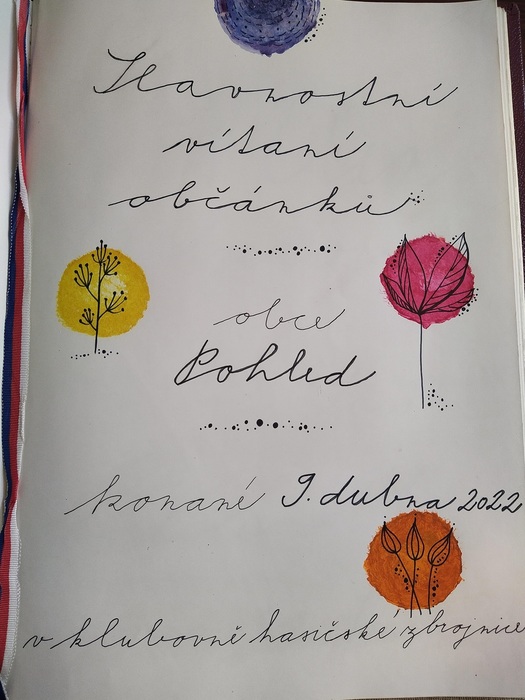 Slavnostní
vítaní
občánků
obce
Pohled
konané 9. dubna 2022
v klubovně hasičské zbrojnice